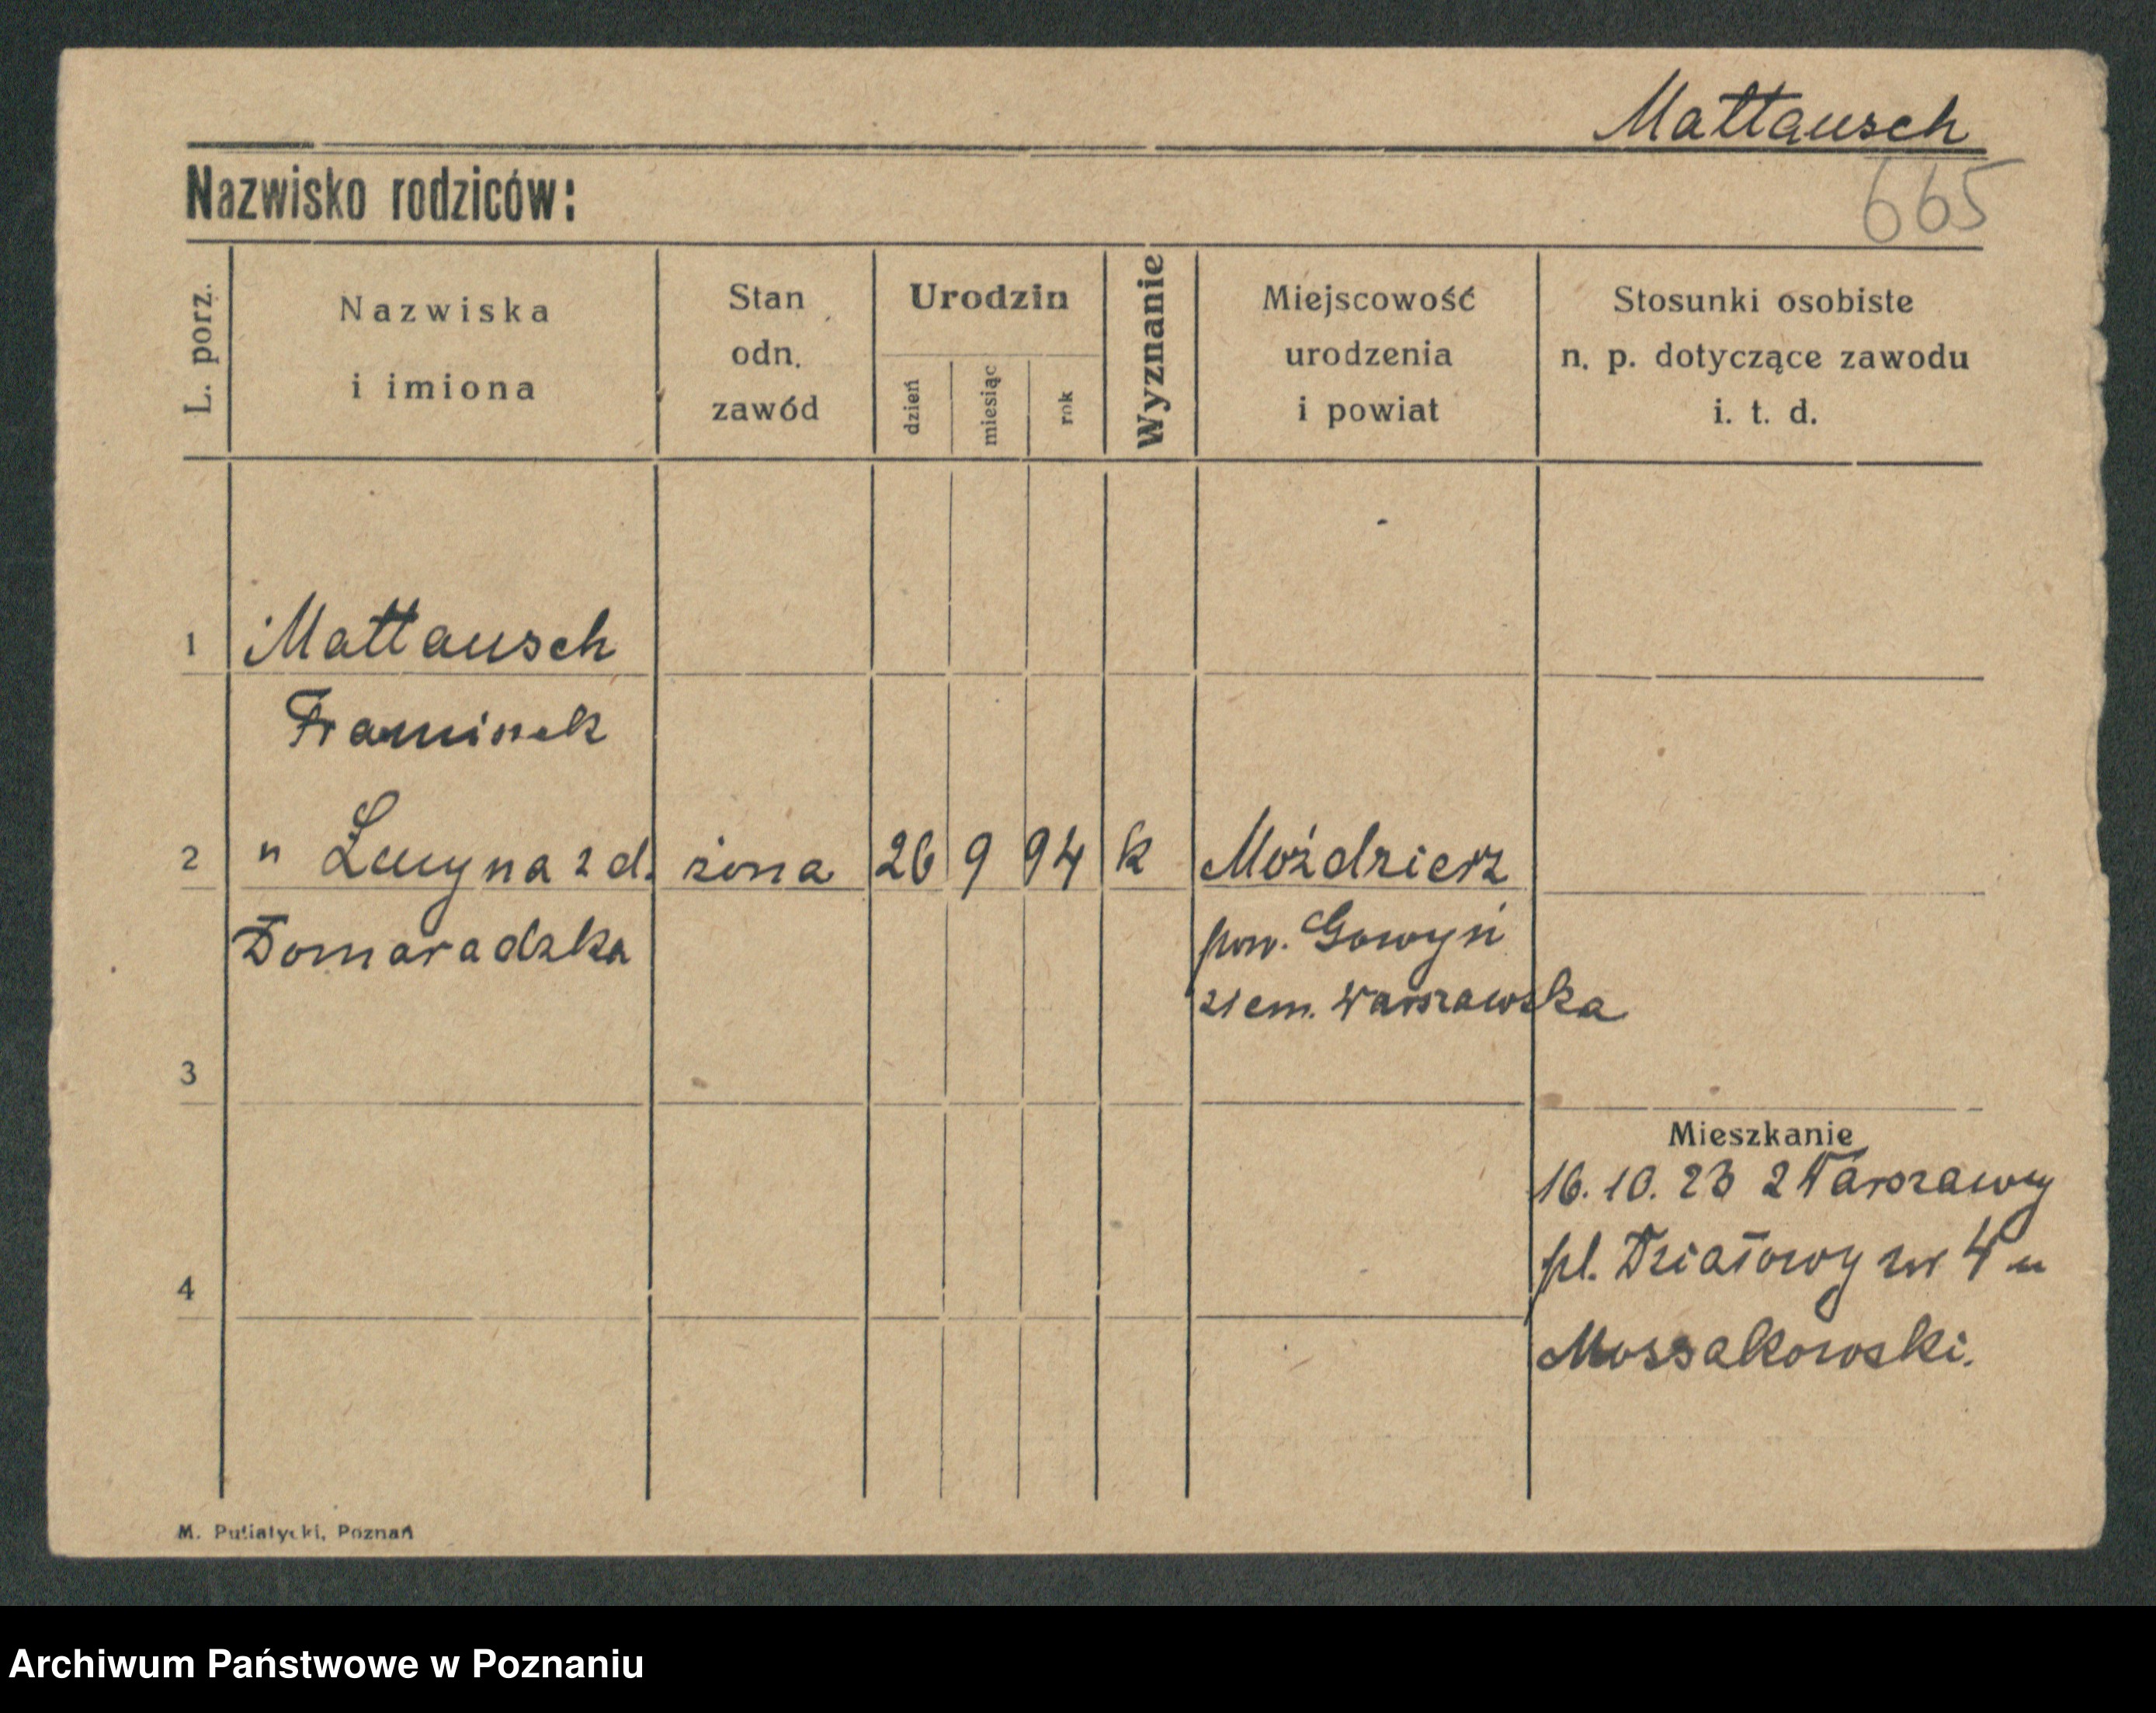 Mattausch
Nazwisko rodziców:
665
L. porz.
Nazwiska
i imiona
Stan
odn.
zawód
Urodzin
dzień
miesiąc
rok
Wyznanie
Miejscowość
urodzenia
i powiat
Stosunki osobiste
n. p. dotyczące zawodu
i. t. d.
1 Mattausch
2 " Lucyna z d. żona 26 9 94 k Moździerz
Domaradzka pow. Gowyń
ziem. Warszawska
3
Mieszkanie
16. 10. 23 z Warszawy
pl. Działowy nr 4 u
4
Mossakowski.
M. Putiatycki, Poznań
Archiwum Państwowe w Poznaniu